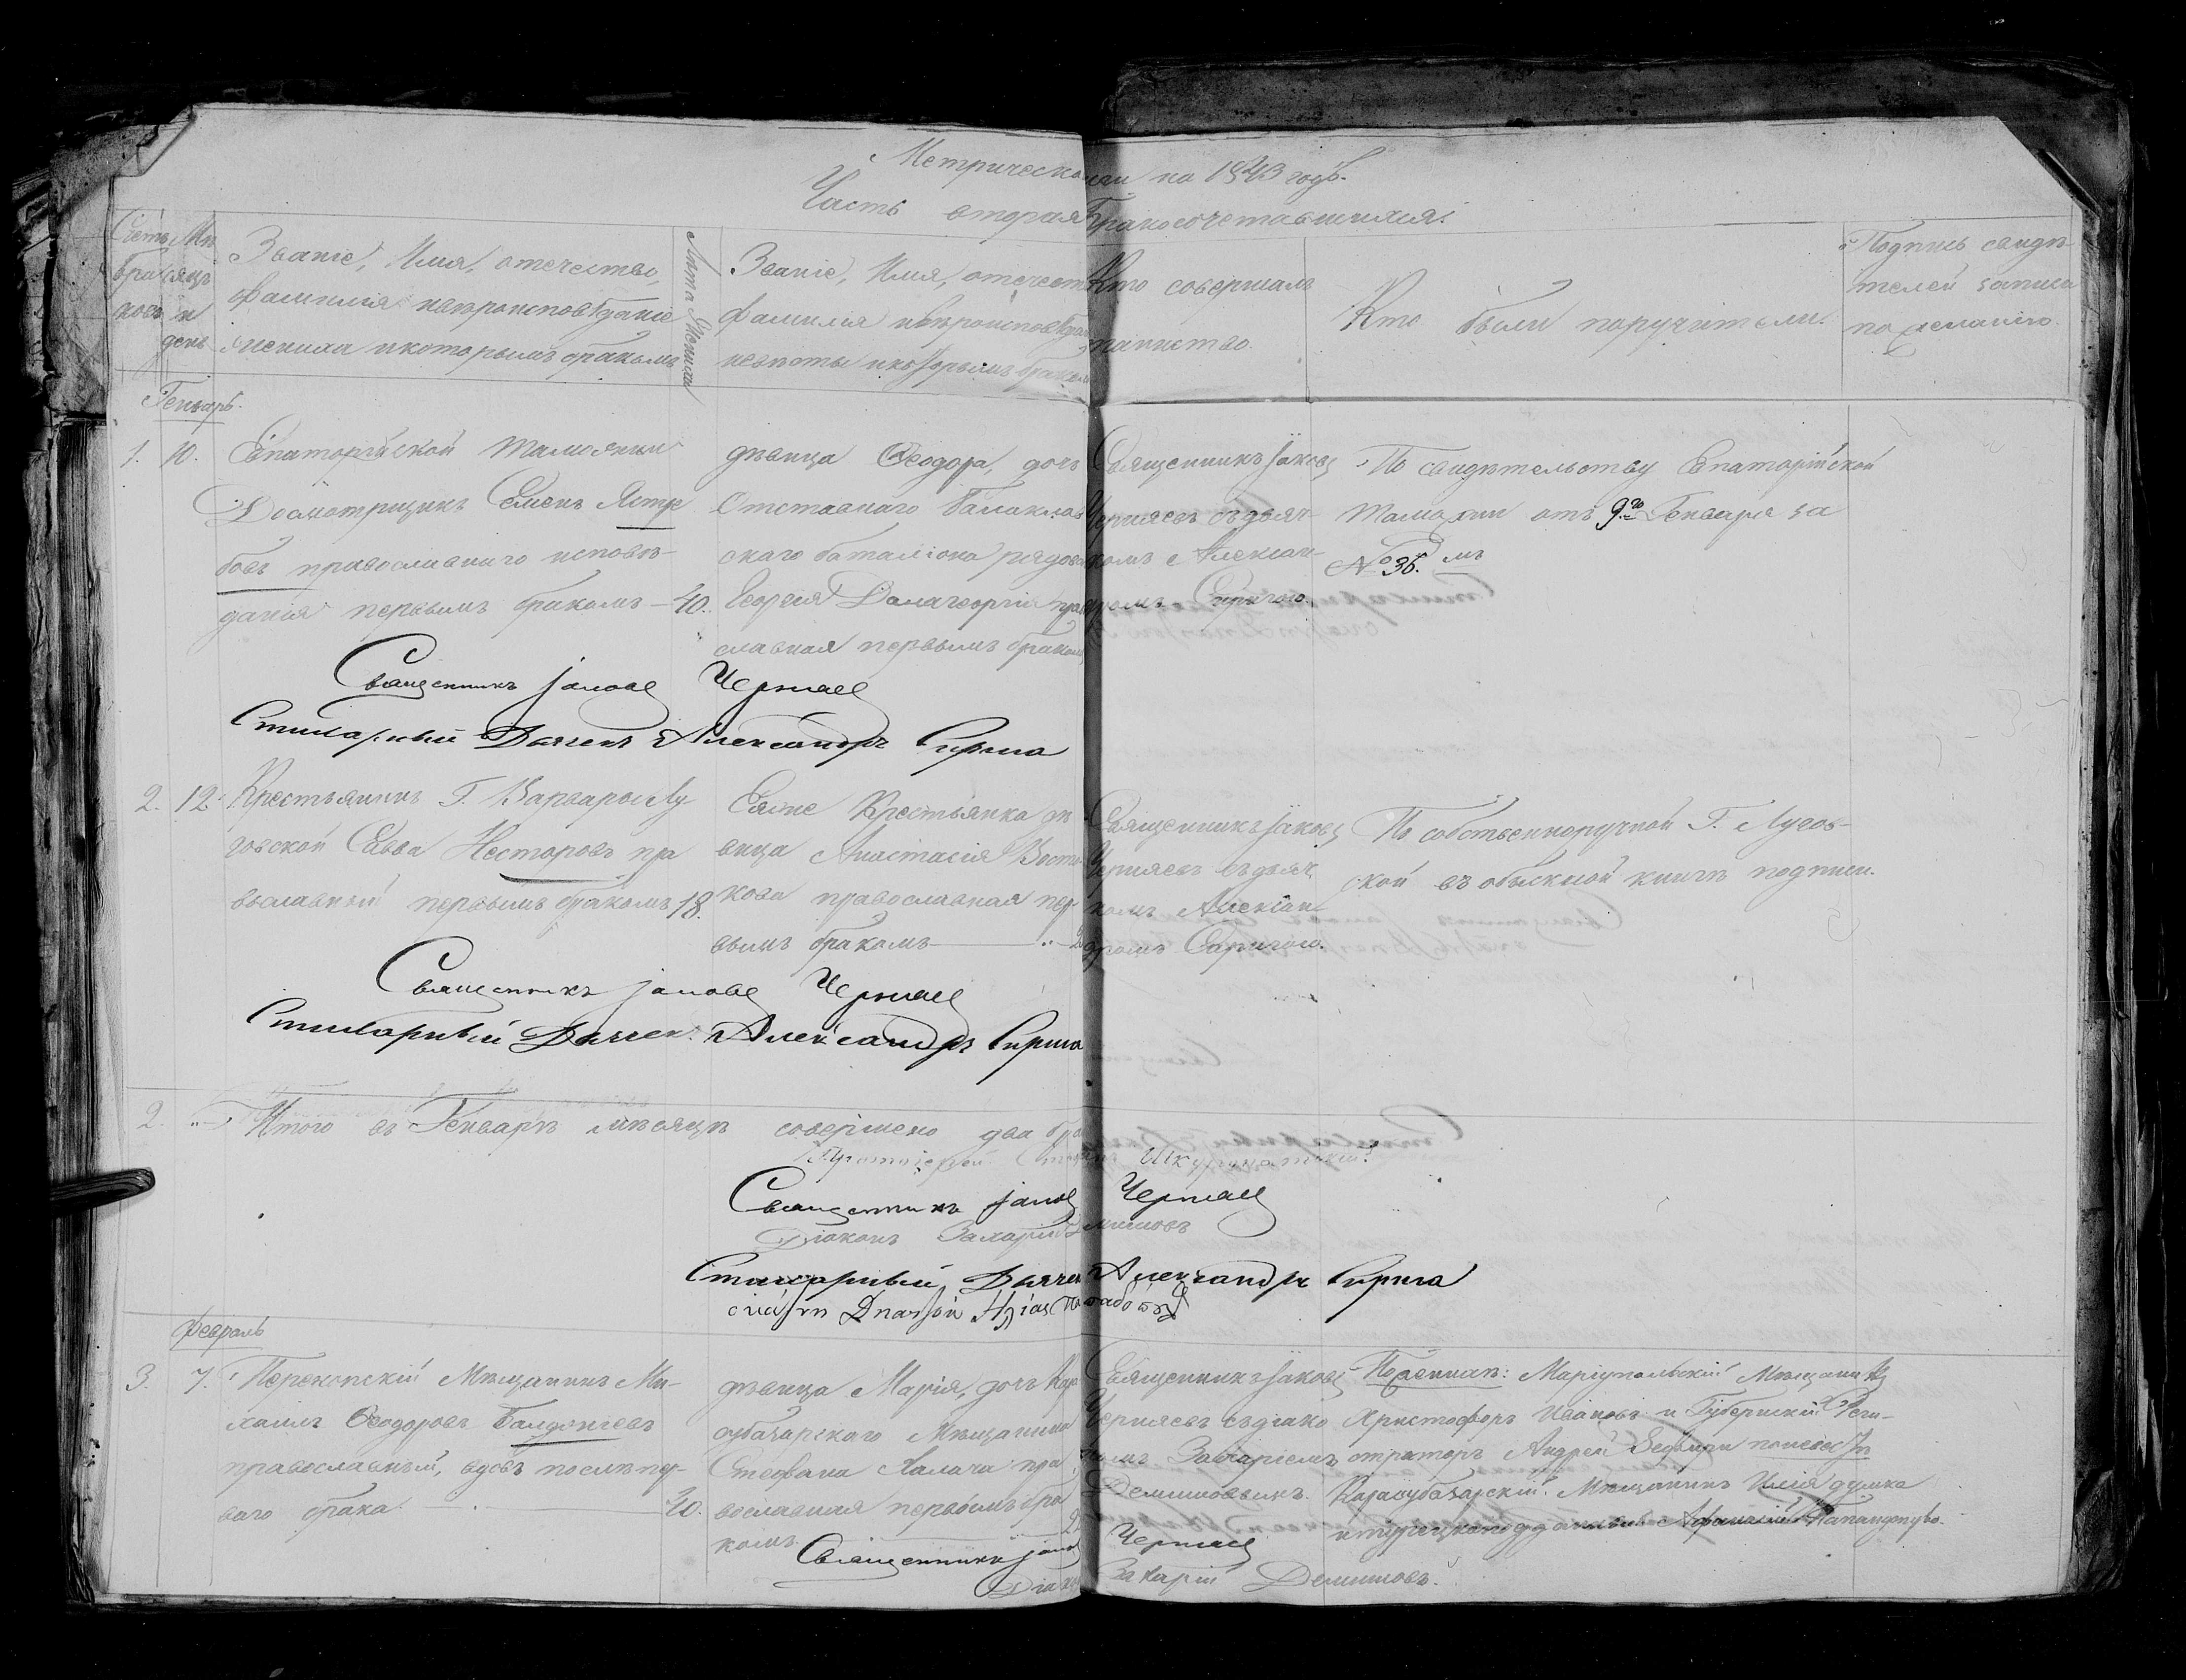 Метрической на 1843 годъ.
Часть вторая Бракосочетавшихся.
Счетъ браковъ
Мѣсяцъ и день
Званіе, Имя, отечество,
фамилія и вѣроисповѣданіе
жениха и которымъ бракомъ
Лѣта Жениха
Званіе, Имя, отечест
фамилія и вѣроисповѣдан
невѣсты и которымъ бракомъ
Кто совершалъ
таинство
Кто были поручители.
Подпись свидѣ-
телей записи
по желанію.
Генварь.
1. 10. Евпаторійской таможни
Досмотрщикъ Семенъ Ястре
бовъ православнаго исповѣ-
данія первымъ бракомъ — 40.
дѣвица Ѳеодора, дочь
Отставнаго Балаклав
скаго баталіона рядов
Георгія православная первымъ бракомъ
Священникъ Іаковъ
Черняевъ съ дьяч-
комъ Алексан-
дромъ
По свидѣтельству Евпаторійской
таможни отъ 9го Генваря за
№ 36. мъ
Священникъ Іаковъ Черняев
Стихарный Дьячекъ Александръ
2. 12. Крестьянинъ Г. Варвары Лу
говской Савва Несторовъ пра
вославный первымъ бракомъ 18.
Еяже Крестьянка дѣ
вица Анастасія
кова православная пер
вымъ бракомъ
Священникъ Іаковъ
Черняевъ съ дьяч
комъ Алексан-
дромъ
По собственноручной Г. Лугов-
ской въ обыскной книгѣ подписи.
Священникъ Іаковъ Черняев
Стихарный Дьячекъ Александръ
2. Итого въ Генварѣ мѣсяцѣ совершено два бра
Протоіерей
Священникъ Іаковъ Черняев
Діаконъ Захарій Демишовъ
Стихарный Дьячек Александръ
Февраль
3. 7. Перекопскій Мѣщанинъ Ми-
хаилъ Ѳеодоровъ
православный, вдовъ послѣ пер-
ваго брака. — 40.
дѣвица Марія, дочь Кара
субазарскаго Мѣщанина
Стефана пра
вославная первымъ бра
комъ 22
Священникъ Іаковъ
Черняевъ съ діако
номъ Захаріемъ
Демишовымъ.
По женихѣ: Маріупольскій Мѣщанинъ
Христофоръ Ивановъ и Губернскій Реги-
страторъ Андрей по невѣстѣ
Карасубазарскій Мѣщанинъ Илія
и турецкоподданный Афанасій
Священникъ Іаков Черняев
Діакон Захарій Демишовъ.